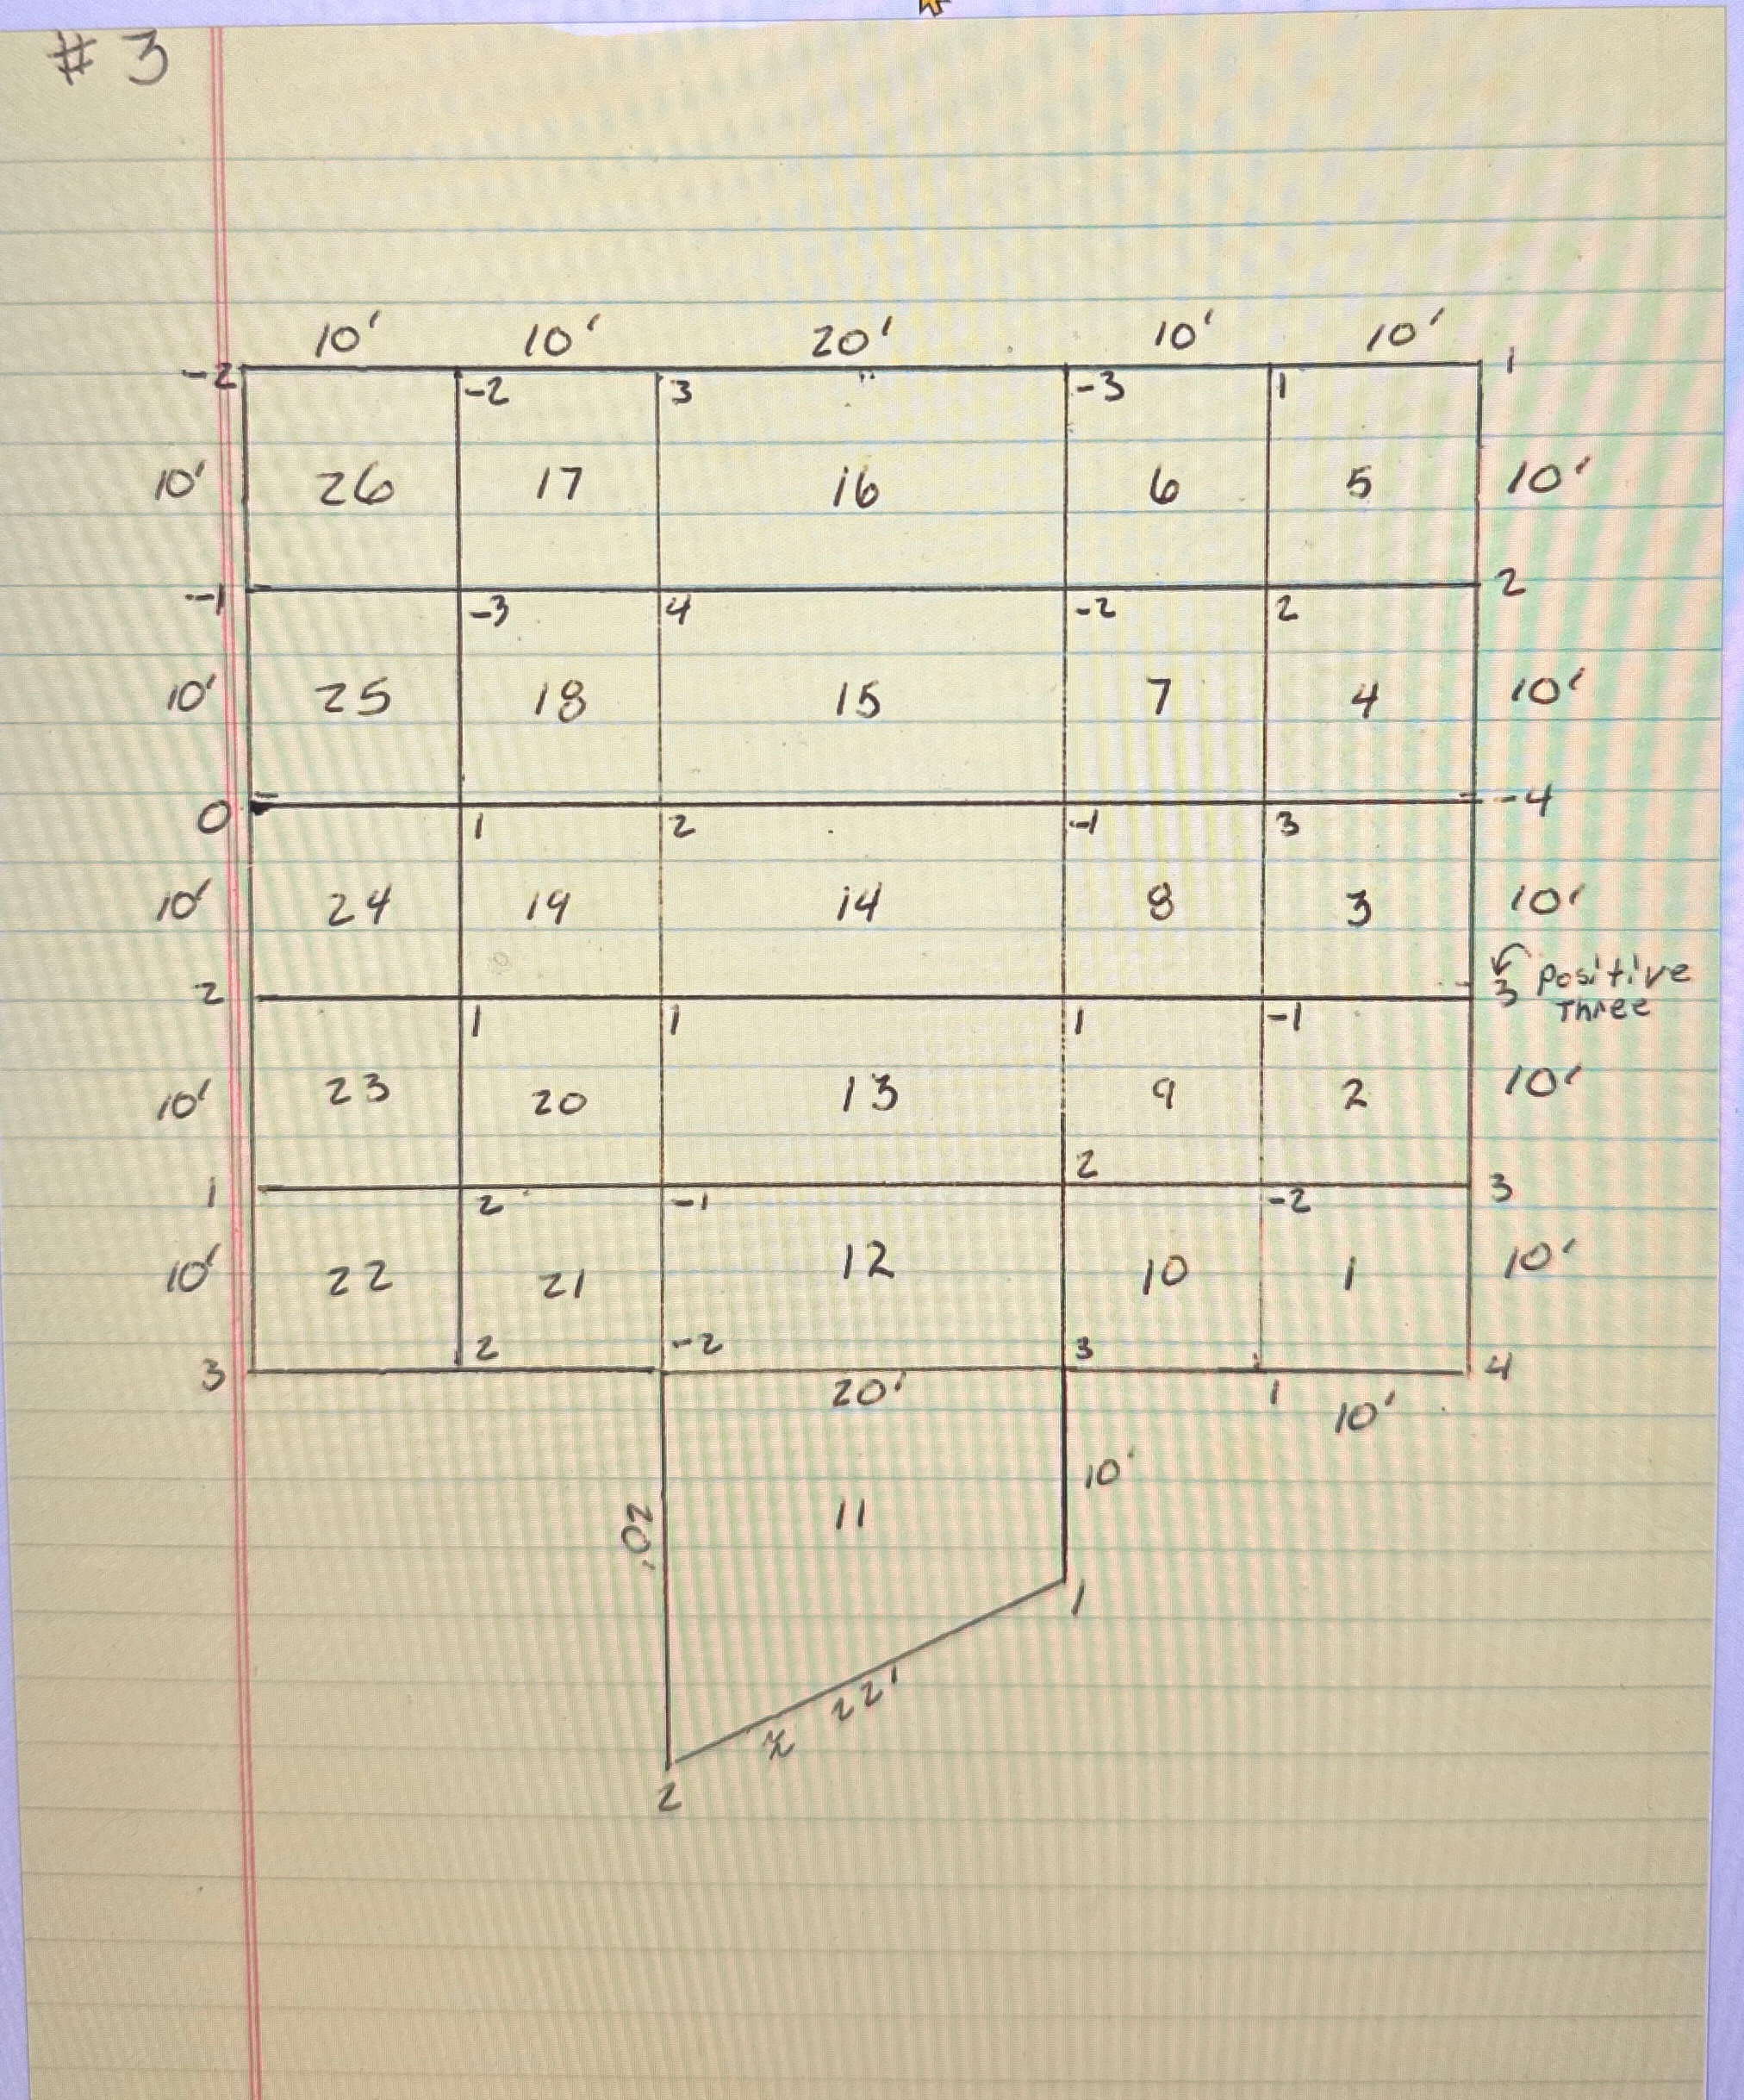 # 3
10' 10' 20' 10' 10'
-2 -2 3 -3 1 1
10' 26 17 16 6 5 10'
-1 -3 4 -2 2 2
10' 25 18 15 7 4 10'
0 1 2 -1 3 -4
10' 24 19 14 8 3 10'
2 1 1 1 -1 3 positive
Three
10' 23 20 13 9 2 10'
1 2 -1 2 -2 3
10' 22 21 12 10 1 10'
3 2 -2 3 1 4
20' 10'
20' 11 10'
1
22'
2